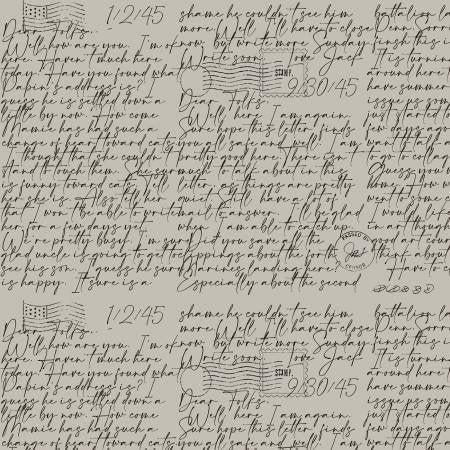 1/2/45
Dear Folks,
Well how are you. I'm ok
here. Haven't much here
today. Have you found what
Dabin's address is?
guess he is settled down a
little by now. How come
Mamie has had such a
change of heart toward cats
I thought that she couldn't
and to touch them. She sure
is funny toward cats. Tell
her she is. Also tell her
that I won't be able to write
her for a few days yet.
We're pretty busy. I'm sure
glad uncle is going to get to
see his son. I guess he sure
is happy. It sure is a
shame he couldn't see him
more. Well I'll have to close
now, but write more Sunday.
Write soon Love Jack
STAMP.
9/30/45
Dear Folks,
Well here I am again.
Sure hope this letter finds
you all safe and well. I am
pretty good here. There isn't
much to talk about in this
letter, as things are pretty
quiet. Still have a lot of
mail to answer. I'll be glad
when I am able to catch up.
Did you save all the
clippings about the forth
Marines landing here?
Especially about the second
PASSED BY
battalion la
Denn. Sorry
finish this
It is turnin
around here t
have summer
issue us som
just started to
few days ago
want to talk a
to go to colleg
Guess you
home. How w
went to some c
I would if
in art though
good art cour
think abou
Have to c
1/2/45
Dear Folks,
Well how are you. I'm ok
here. Haven't much here
today. Have you found what
Dabin's address is?
guess he is settled down a
little by now. How come
Mamie has had such a
change of heart toward cats
shame he couldn't see him
more. Well I'll have to close
now, but write more Sunday.
Write soon Love Jack
STAMP.
9/30/45
Dear Folks,
Well here I am again.
Sure hope this letter finds
you all safe and well. I am
battalion la
Denn. Sorry
finish this
It is turnin
around here t
have summer
issue us som
just started to
few days ago
want to talk a